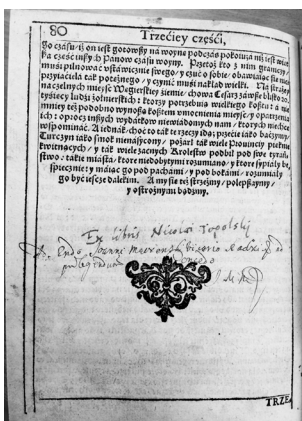 80
Trzećiey częśći,
go czásu iż on iest gotowszy ná woynę podczás pokoiu niż iest wiel-
ka część inszych Panow czásu woyny. Przetoż kto z nim graniczy/
muśi pilnowáć vstáwicznie swego/ y czuć o sobie/ obawiáiąc się nie-
przyiaćiela ták potężnego/ y czynić muśi nakład wielki. Ná straży
naczelnych mieysc Węgierskiey źiemie/ chowa Cesarz záwsze blisko 20.
tyśięcy ludźi żołnierskich: ktorzy potrzebuią wielkiego kosztu: á nie
mniey też podobno wynośi wzmocnienie mieysc/ y opátrzenie
ich: oprocz inszych wydatkow niewiádomych nam/ ktorych niechcę
wspomináć. A iednák choć to ták te rzeczy idą; przećie iáko baczymy/
Turczyn iáko smok nienásycony/ pożárł ták wiele Prouinciy pięknie
kwitnących/ y ták wiele zacnych Krolestw podbił pod swe tyrań-
stwo: tákie miástá/ ktore niedobytemi rozumiano/ y ktore sypiáły be-
spiecznie: y máiąc go pod pachą/ y pod bokámi/ rozumiáły
go być iescze dálekim. A my się też strzeżmy/ polepszaymy/
y ostrożnymi bądźmy.
Ex libris Nicolai Topolski
TRZE-